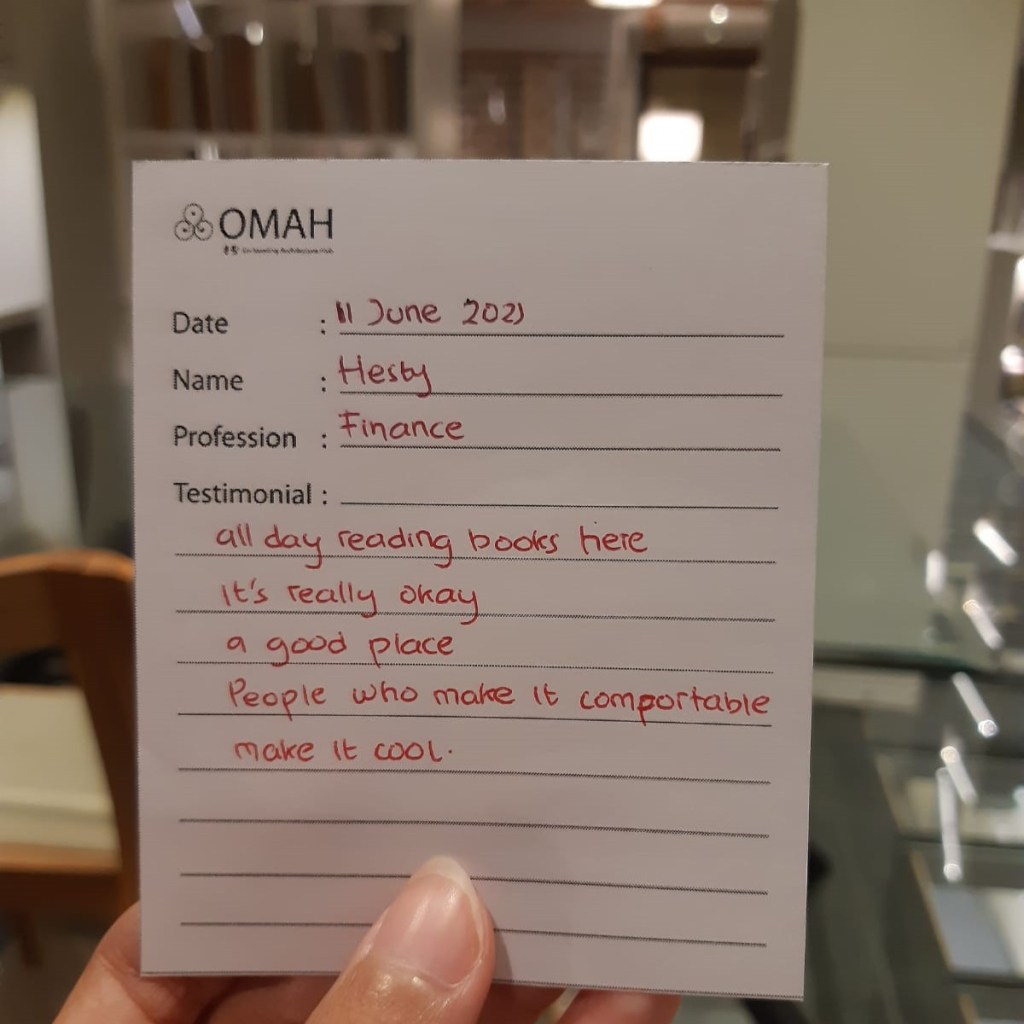 OMAH
Date : 11 June 2021
Name : Hesty
Profession : Finance
Testimonial :
all day reading books here
it's really okay
a good place
People who make it comportable
make it cool.